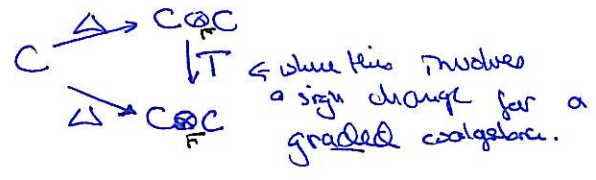 Δ C⊗C
F
C ↓T ← where this involves
a sign change for a
Δ C⊗C graded coalgebra.
F